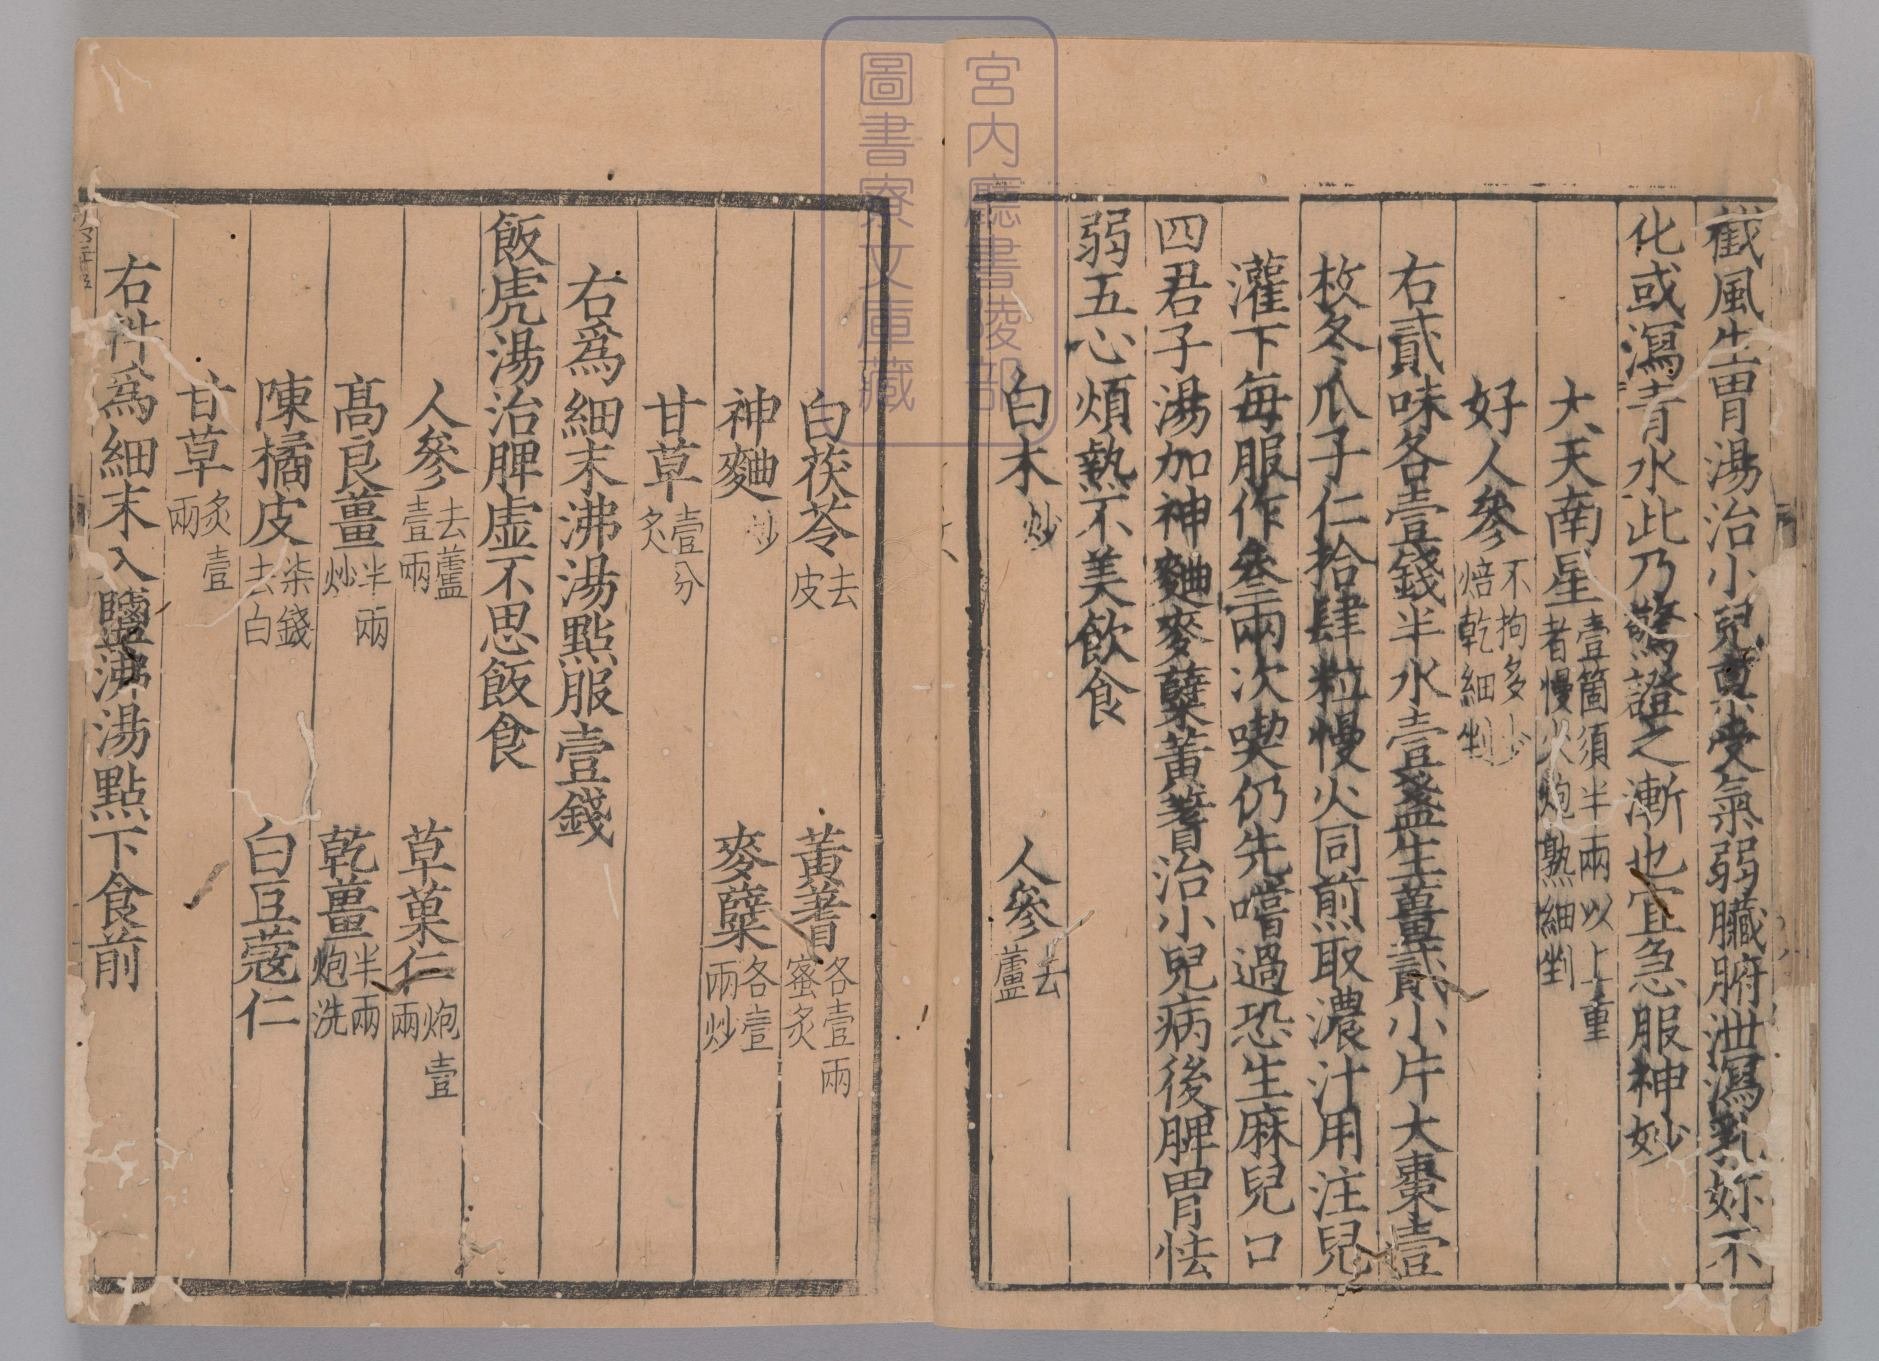 截風生胃湯治小兒稟受氣弱臟腑泄瀉乳妳不
化或瀉青水此乃驚證之漸也宜急服神妙
大天南星壹箇須半兩以上重者慢火炮熟細剉
好人參不拘多少焙乾細剉
右貳味各壹錢半水壹盞生薑貳小片大棗壹
枚冬瓜子仁拾肆粒慢火同煎取濃汁用注兒
灌下每服作叁兩次喫仍先嚐過恐生麻兒口
四君子湯加神麯麥蘗黃蓍治小兒病後脾胃怯
弱五心煩熱不美飲食
白朮炒 人參去蘆
白茯苓去皮 黃蓍各壹兩蜜炙
神麯炒 麥蘗各壹兩炒
甘草壹分炙
右爲細末沸湯點服壹錢
飯虎湯治脾虛不思飯食
人參去蘆壹兩 草菓仁炮壹兩
髙良薑半兩炒 乾薑半兩炮洗
陳橘皮柒錢去白 白豆蔻仁
甘草炙壹兩
右件爲細末入鹽沸湯點下食前
宮内廳書陵部
圖書寮文庫藏